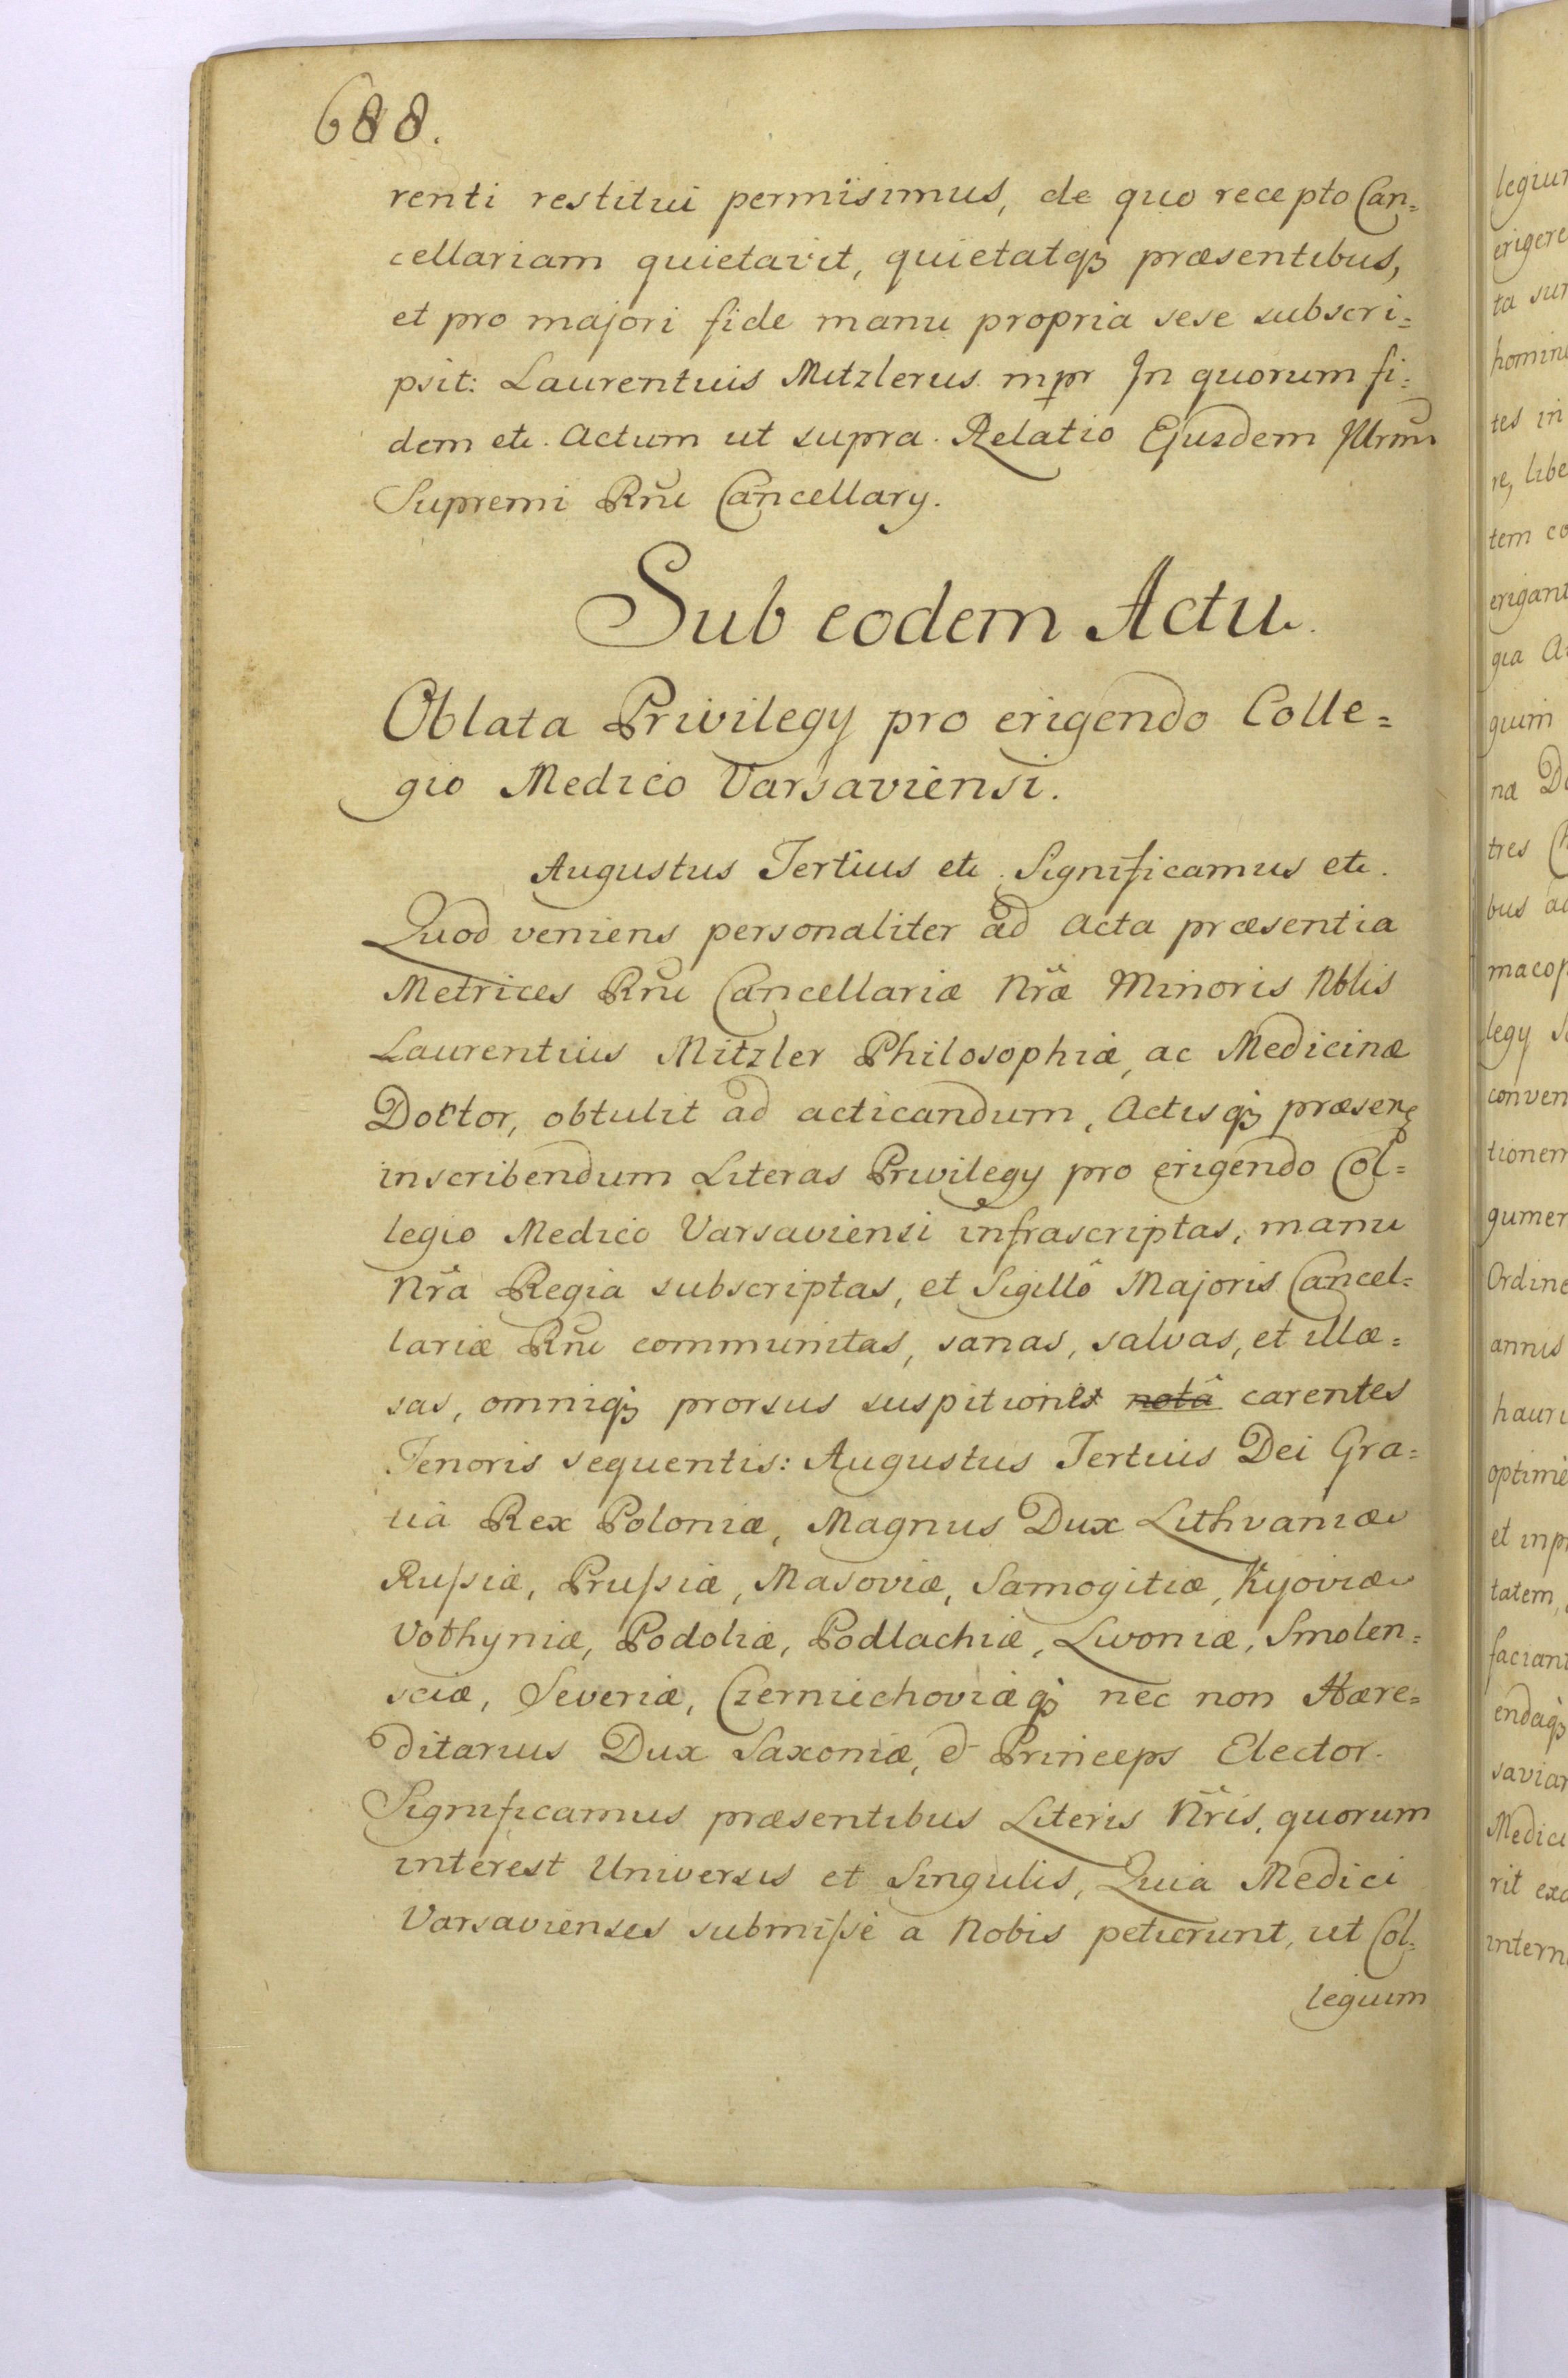 688.
renti restitui permisimus, de quo recepto Can=
cellariam quietavit, quietatqꝫ præsentibus,
et pro majori fide manu propria sese subscri=
psit: Laurentius Mitzlerus mpr In quorum fi=
dem etc. Actum ut supra. Relatio Ejusdem Illrmi
Supremi Rñi Cancellary.
Sub eodem Actu.
Oblata Privilegy pro erigendo Colle=
gio Medico Varsaviensi.
Augustus Tertius etc. Significamus etc.
Quod veniens personaliter ad Acta præsentia
Metrices Rñi Cancellariæ Nr̃æ Minoris Nblis
Laurentius Mitzler Philosophiæ, ac Medicinæ
Doctor, obtulit ad acticandum, Actisqꝫ præsen:
inscribendum Literas Privilegy pro erigendo Col=
legio Medico Varsaviensi infrascriptas, manu
Nr̃a Regia subscriptas, et Sigillô Majoris Cancel=
lariæ Rñi communitas, sanas, salvas, et illæ=
sas, omniqꝫ prorsus suspitione notâ carentes
Tenoris sequentis: Augustus Tertius Dei Gra=
tiâ Rex Poloniæ, Magnus Dux Lithvaniæ
Russiæ, Prussiæ, Masoviæ, Samogitiæ, Kyoviæ
Volhyniæ, Podoliæ, Podlachiæ, Livoniæ, Smolen=
sciæ, Severiæ, Czerniechoviæqꝫ nec non Hære=
ditarius Dux Saxoniæ, & Princeps Elector.
Significamus præsentibus Literis Nr̃is, quorum
interest Universis et Singulis, Quia Medici
Varsavienses submissè a Nobis petierunt, ut Col=
legium
legiu
erigere
ta sun
homin
tes in
re, libe
tem co
erigant
gia A
quim
na D
tres
bus a
macop
legy
conven
tionem
gumen
Ordine
annis
hauri
optimè
et inp
tatem,
faciant
endaqꝫ
savian
Medici
rit exa
intern